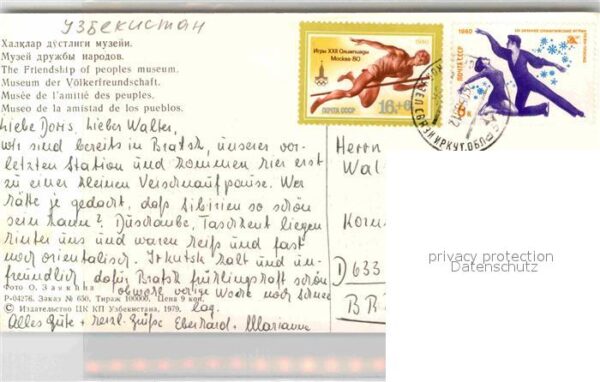 УЗБЕКИСТАН
Халқлар дўстлиги музейи.
Музей дружбы народов.
The Friendship of peoples museum.
Museum der Völkerfreundschaft.
Musée de l'amitié des peuples.
Museo de la amistad de los pueblos.
Игры XXII Олимпиады
Москва 80
1980
ПОЧТА СССР
16+6
1980
ПОЧТА СССР
Liebe Doris, Lieber Walter,
wir sind bereits in Bratsk, unserer vor-
letzten Station und kommen hier erst
zu einer kleinen Verschnaufpause. Wer
hätte je gedacht, daß Sibirien so schön
sein kann? Duschanbe, Taschkent liegen
hinter uns und waren heiß und fast
noch orientalisch. Irkutsk kalt und un-
freundlich, dafür Bratsk frühlingshaft schön
obwohl vorige Woche noch Schnee
lag.
Alles Gute + herzl. Grüße Eberhard, Marianne
Фото О. Заикина
Р-04276. Заказ № 650. Тираж 100000. Цена 9 коп.
© Издательство ЦК КП Узбекистана, 1979.
Herrn
Wal
D 633
BR
privacy protection
Datenschutz